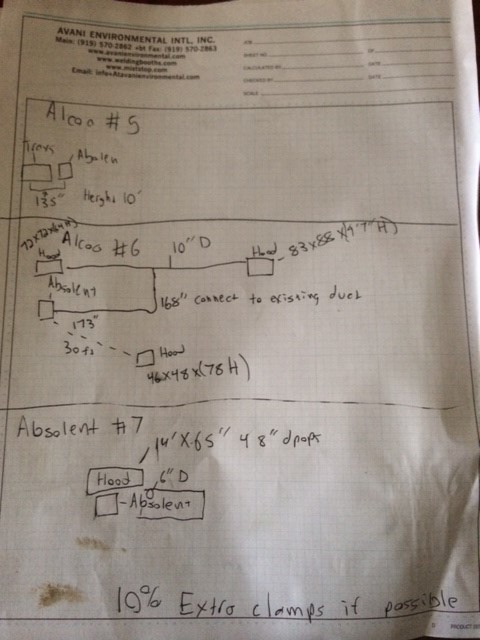 AVANI ENVIRONMENTAL INTL, INC.
Main: (919) 570-2862 Fax: (919) 570-2863
www.avanienvironmental.com
www.weldingbooths.com
www.miststop.com
Email: info@avanienvironmental.com
JOB
SHEET NO. OF
CALCULATED BY DATE
CHECKED BY DATE
SCALE
Alcoa # 5
Absolen
135" Height 10'
72x72x(64H)
Alcoa #6 10" D
Hood Hood - 83x88x(4'7"H)
Absolent
168" connect to existing duct
173"
30 ft
Hood
46x48x(78H)
Absolent #7
14' X 65" 4 8" drops
Hood 6" D
- Absolent
10% Extra clamps if possible
PRODUCT